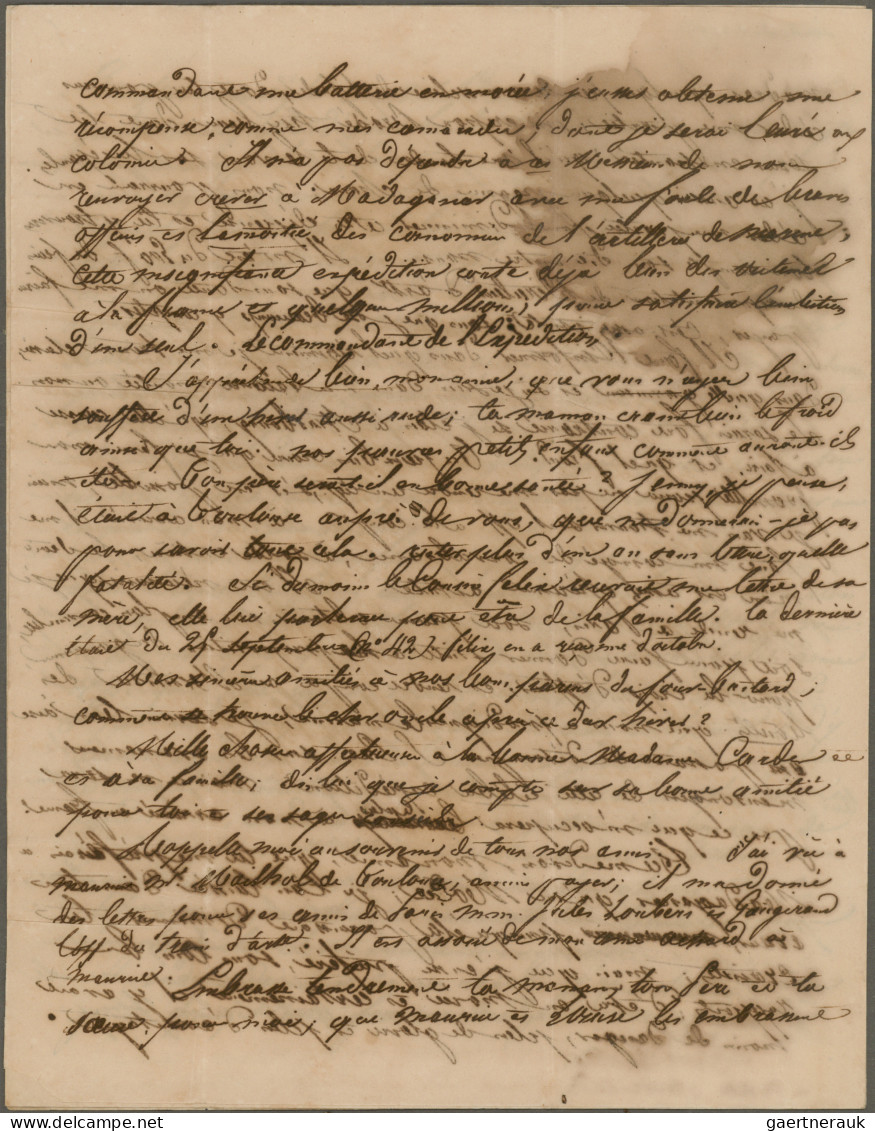 commandant une batterie en morée, j'eusse obtenu une
récompense, comme mes camarades, dont je serai leurré aux
colonies. Il n'a pas dépendu à ces Messieurs de nous
envoyer crever à Madagascar avec une foule de braves
officiers et la moitié des canonniers de l'artillerie de marine,
cette insignifiante expédition coute déjà bien des victimes
à la france et quelques millions, pour satisfaire l'ambition
d'un seul. Le commandant de l'Expédition.
J'appréhende bien, mon amie, que vous n'ayez bien
souffert d'un hiver aussi rude; ta maman craint bien le froid
ainsi que toi. nos pauvres petits enfans comment auront-ils
été? Ton père serait-il en bonne santé? Jenny, je pense,
était à Toulouse auprès de vous, que ne donnerai-je pas
pour savoir tout cela. rester plus d'un an sans lettre, quelle
fatalité. Si du moins le Cousin félix recevait une lettre de sa
mère, elle lui parlerait peut être de la famille. la dernière
était du 25 septembre félix en a reçu une d'octobre.
Mes sincères amitiés à nos bons parens du four-batard;
comment se trouve le cher oncle après ce dur hiver?
Mille choses affectueuses à la bonne Madame Carde
et à sa famille; dis lui que je compte sur sa bonne amitié
pour toi et ses sages conseils
Rappelle moi au souvenir de tous nos amis. J'ai vu à
maurice Mr. Mailhol de Toulouse, ami payer; il m'a donné
des lettres pour ses amis de Paris mm. Jules Loubers et Fongeraud
off. du train d'art. Il est associé de mon ami Achard à
maurice.
Embrasse tendrement ta maman, ton père et ta
soeur pour moi, que maurice et Louise les embrassent
gaertnerauk